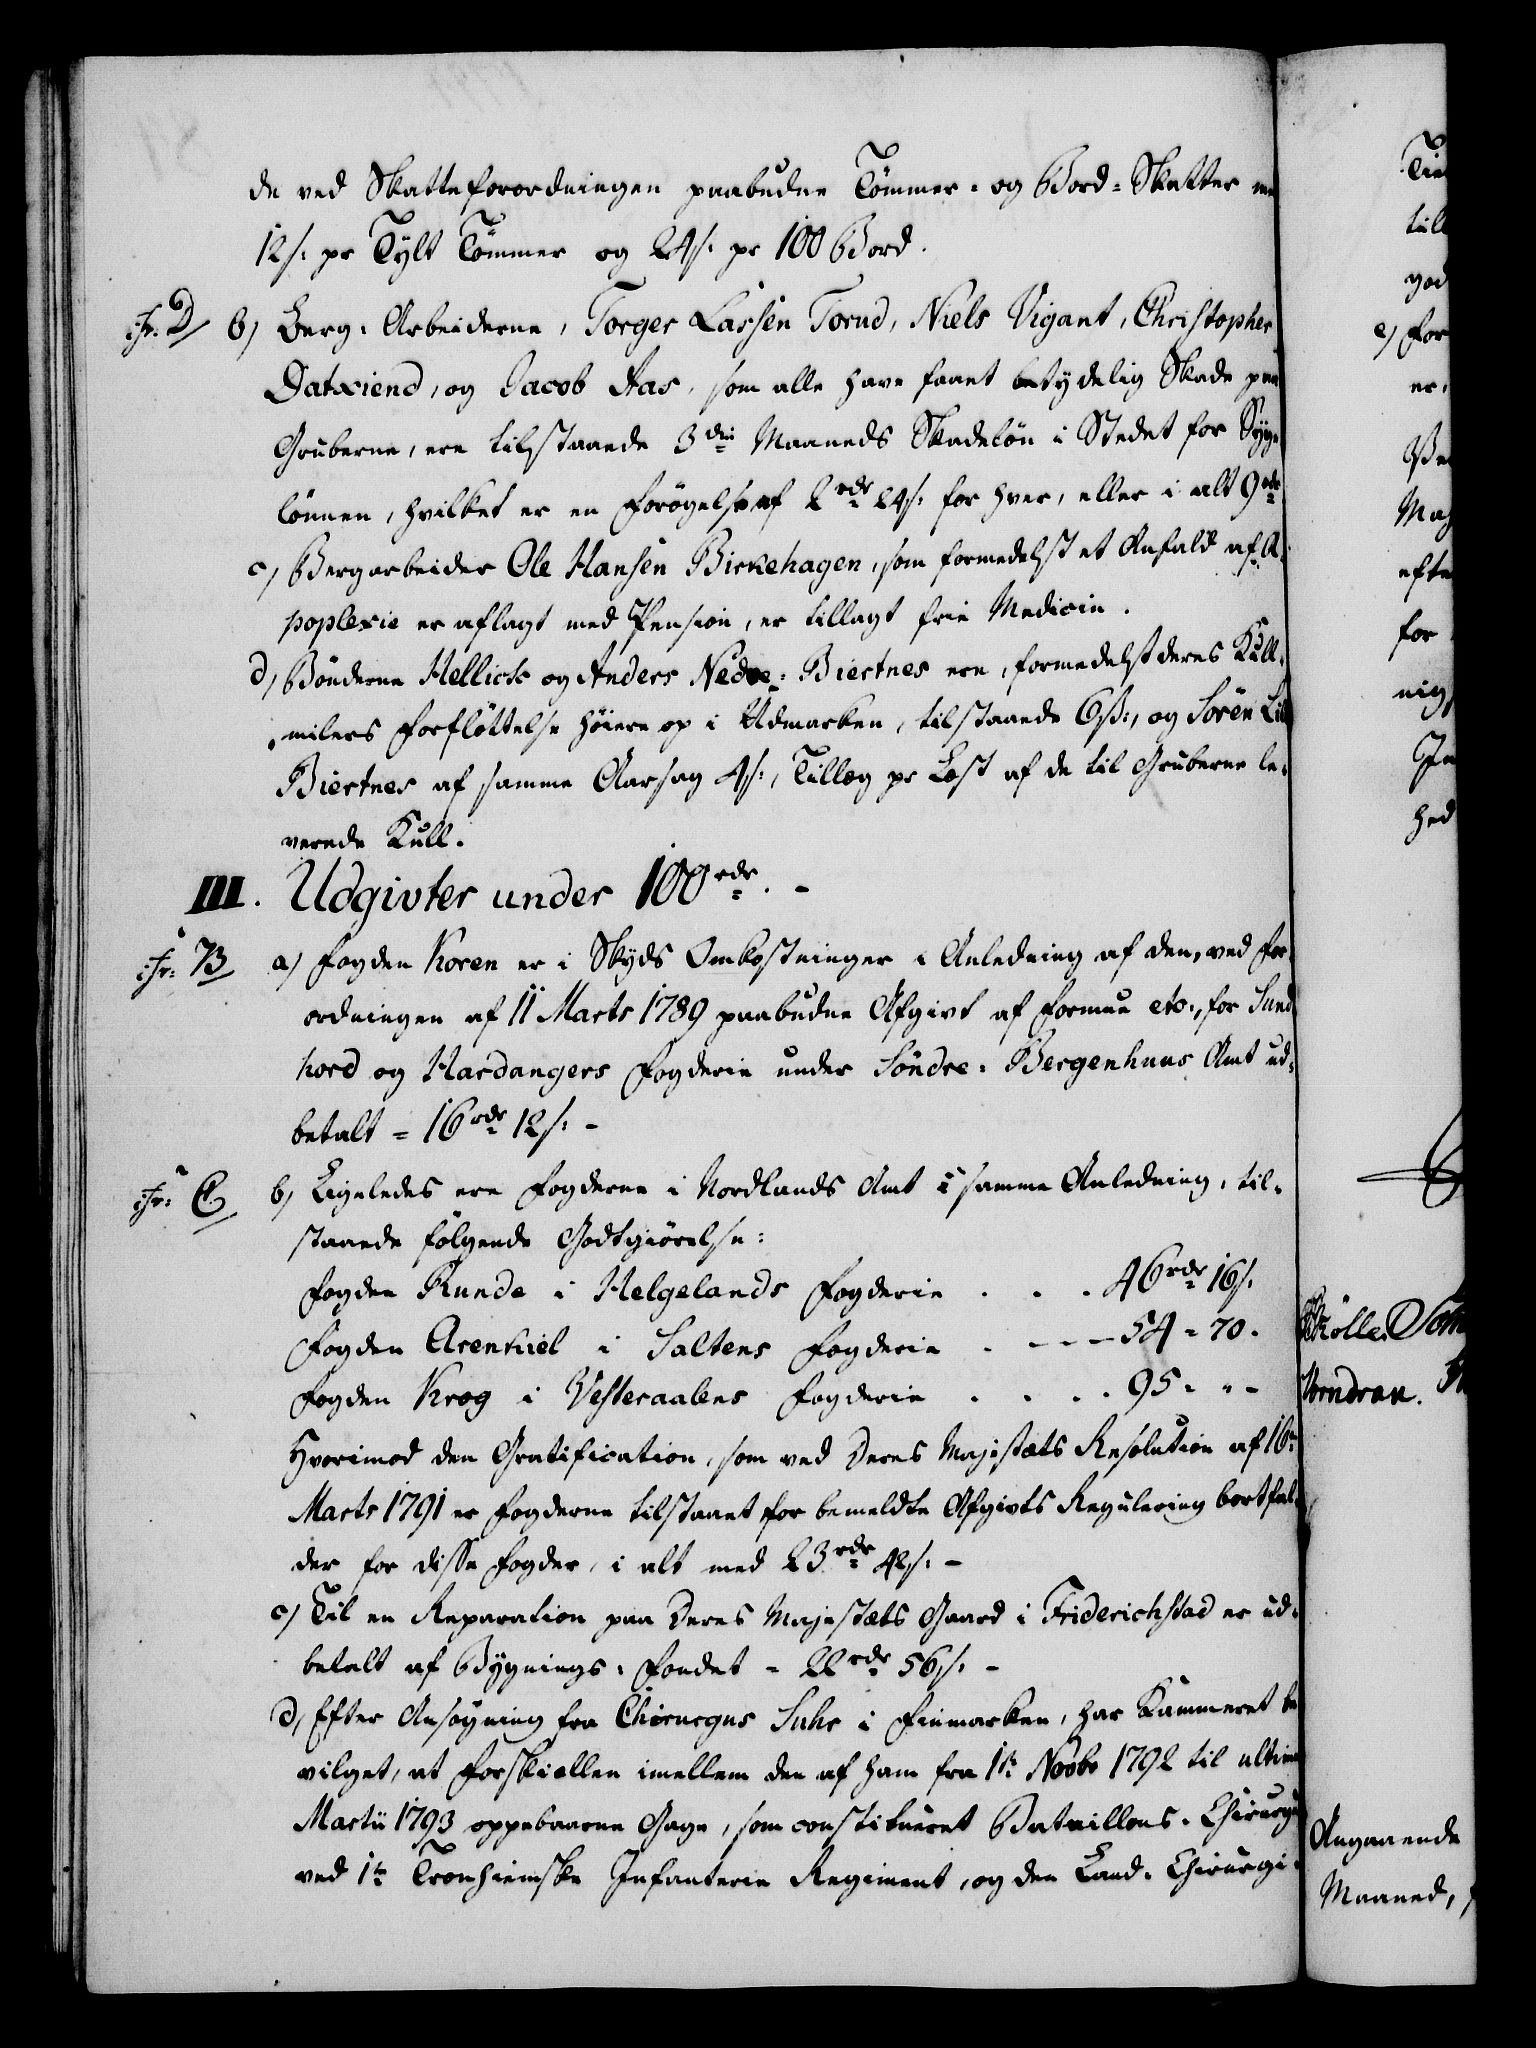 de ved Skatteforordningen paabudne Tömmer- og Bord-Skatter med
12 s: pr Tylt Tömmer og 24 s: pr 100 Bord.
cfr: D b) Berg-Arbeiderne, Torger Lassen Torud, Niels Vigant, Christopher
Datxiend, og Jacob Aas, som alle have faaet betydelig Skade paa
Gruberne, ere tilstaaede 3de Maaneds Skadelön i Stedet for Syge
lönnen, hvilket er en Forögelse af 2 rdr 24 s: for hver, eller i alt 9 rdr
c) Bergarbeider Ole Hansen Birkehagen, som formedelst et Anfald af A-
poplexie er aflagt med Pension, er tillagt frie Medicin.
d) Bönderne Hellick og Anders Nedre-Biertnes ere, formedelst deres Kull-
milers Forflöttelse höiere op i Udmarken, tilstaaede 6 s:, og Sören Lille
Biertnes af samme Aarsag 4 s:, Tillæg pr Læst af de til Gruberne le-
verede Kull.
III. Udgivter under 100 rdr. -
cfr: B a) Fogden Koren er i Skyds Omkostninger i Anledning af den, ved For-
ordningen af 11 Marts 1789 paabudne Afgivt af Formue etc., for Sund-
hord og Hardangers Fogderie under Söndre-Bergenhuus Amt ud-
betalt = 16 rdr 12 s: -
cfr: C b) Ligeledes ere Fogderne i Nordlands Amt i samme Anledning, til-
staaede fölgende Godtgiörelse:
Fogden Runde i Helgelands Fogderie . . . 46 rdr 16 s.
Fogden Arentkiel i Saltens Fogderie . - - - 54 - 70.
Fogden Krog i Vesteraalens Fogderie . . . . 95 - " -
Hvorimod den Gratification, som ved Deres Majestæts Resolution af 16de
Marts 1791 er Fogderne tilstaaet for bemeldte Afgivts Regulering bortfal-
der for disse Fogder, i alt med 23 rdr 42 s: -
c) Til en Reparation paa Deres Majestæts Gaard i Friderichstad er ud-
betalt af Bygnings-Fondet - 22 rdr 56 s: -
d) Efter Ansøgning fra Chirurgus Suhr i Finmarken, har Kammeret be
vilget, at Forskiellen imellem den af ham fra 1te Novbr 1792 til ultimo
Martii 1793 oppebaarne Gage, som constitueret Bataillons-Chirurgus
ved 1te Tronhiemske Infanterie Regiment, og den Land-Chirurgi-
Tie
till
god
e) For
er,
Maj
efte
for
nig,
hed
Vorndran.
Angaaende
Maaned,